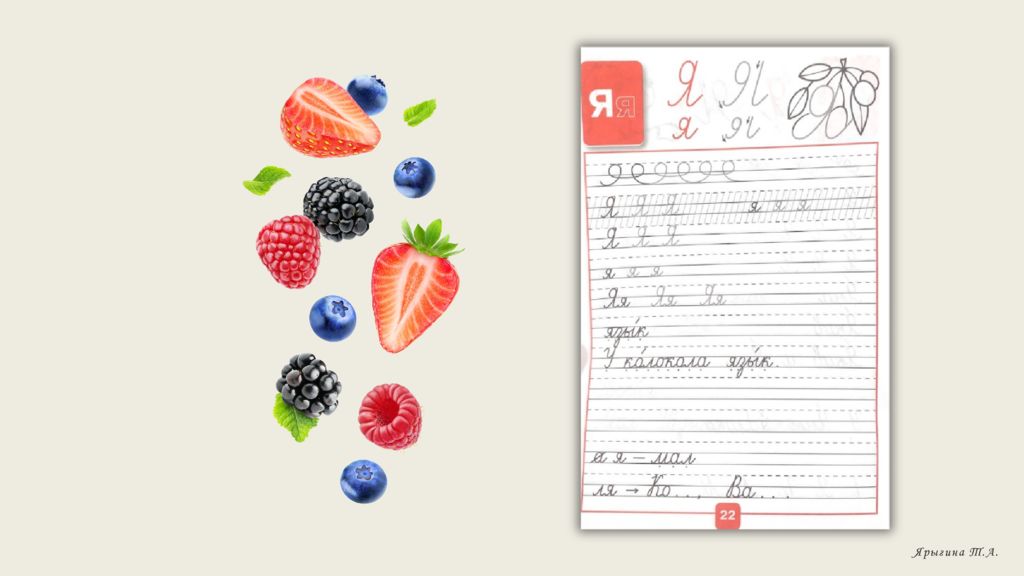 Я Я Я Я
я я
Я Я Я я я я
Я Я Я
я я я
Яя Яя Яя
язы́к
У ко́локола язы́к.
а я – мал
ля → Ко..., Ва...
22
Ярыгина Т.А.